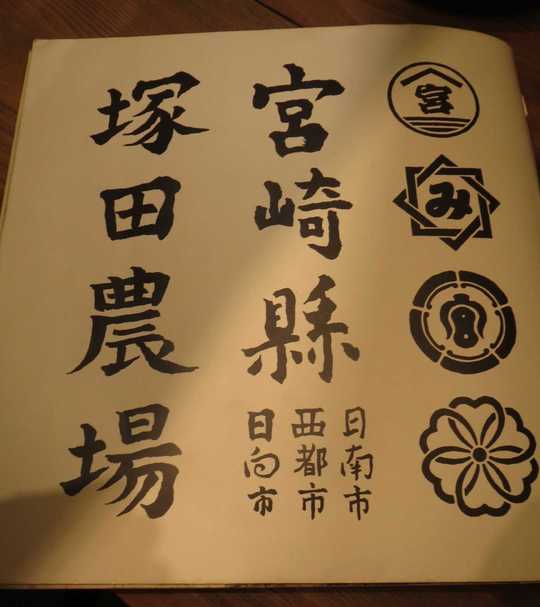 宮
み
宮
宮崎縣
日南市
西都市
日向市
塚田農場